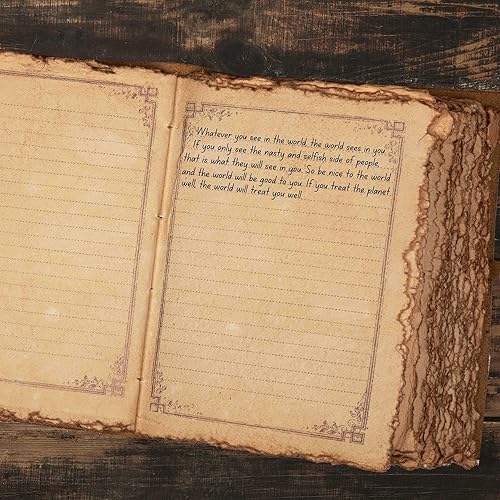 Whatever you see in the world, the world sees in you.
If you only see the nasty and selfish side of people,
that is what they will see in you. So be nice to the world
and the world will be good to you. If you treat the planet
well, the world will treat you well.